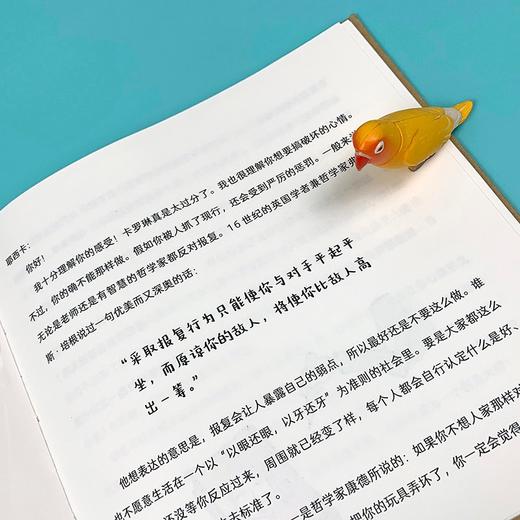 耶西卡：
你好！
我十分理解你的感受！卡罗琳真是太过分了。我也很理解你想要搞破坏的心情。
不过，你的确不能那样做。假如你被人抓了现行，还会受到严厉的惩罚。一般来
无论是老师还是有智慧的哲学家都反对报复。16 世纪的英国学者兼哲学家弗
斯·培根说过一句优美而又深奥的话：
“采取报复行为只能使你与对手平起平
坐，而原谅你的敌人，将使你比敌人高
出一等。”
他想表达的意思是，报复会让人暴露自己的弱点，所以最好还是不要这么做。谁
也不愿意生活在一个以“以眼还眼，以牙还牙”为准则的社会里。要是大家都这么
还没等你反应过来，周围就已经变了样，每个人都会自行认定什么是好、
去标准了。
是哲学家康德所说的：如果你不想人家那样对
把你的玩具弄坏了，你一定会觉得